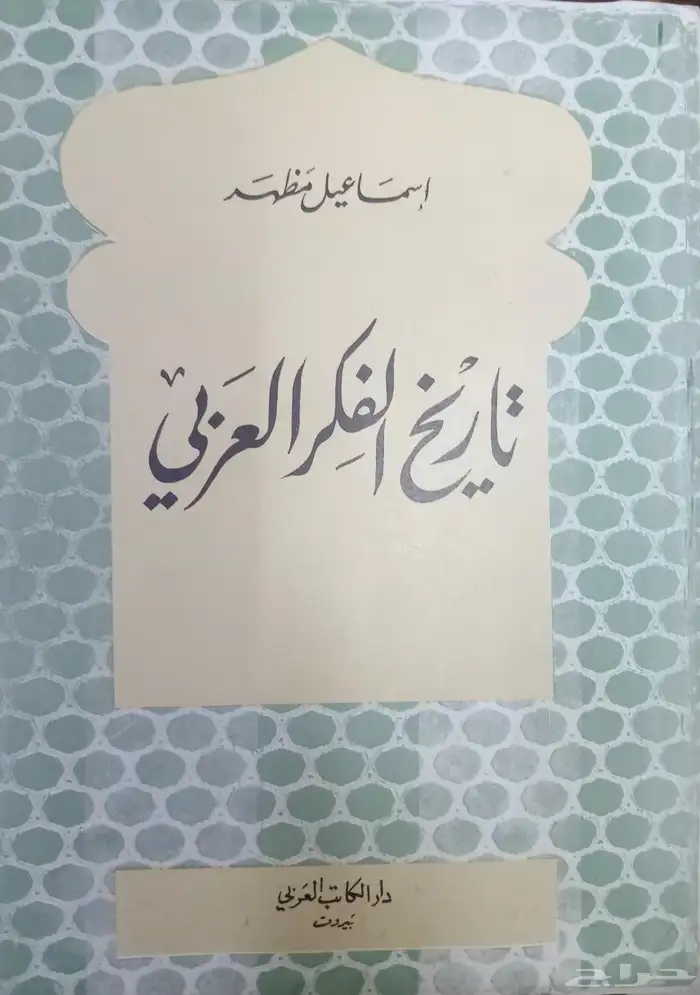 إسماعيل مَظهَر
تاريخ الفِكر العَرَبي
دار الكاتب العَرَبي
بَيروت
حراج